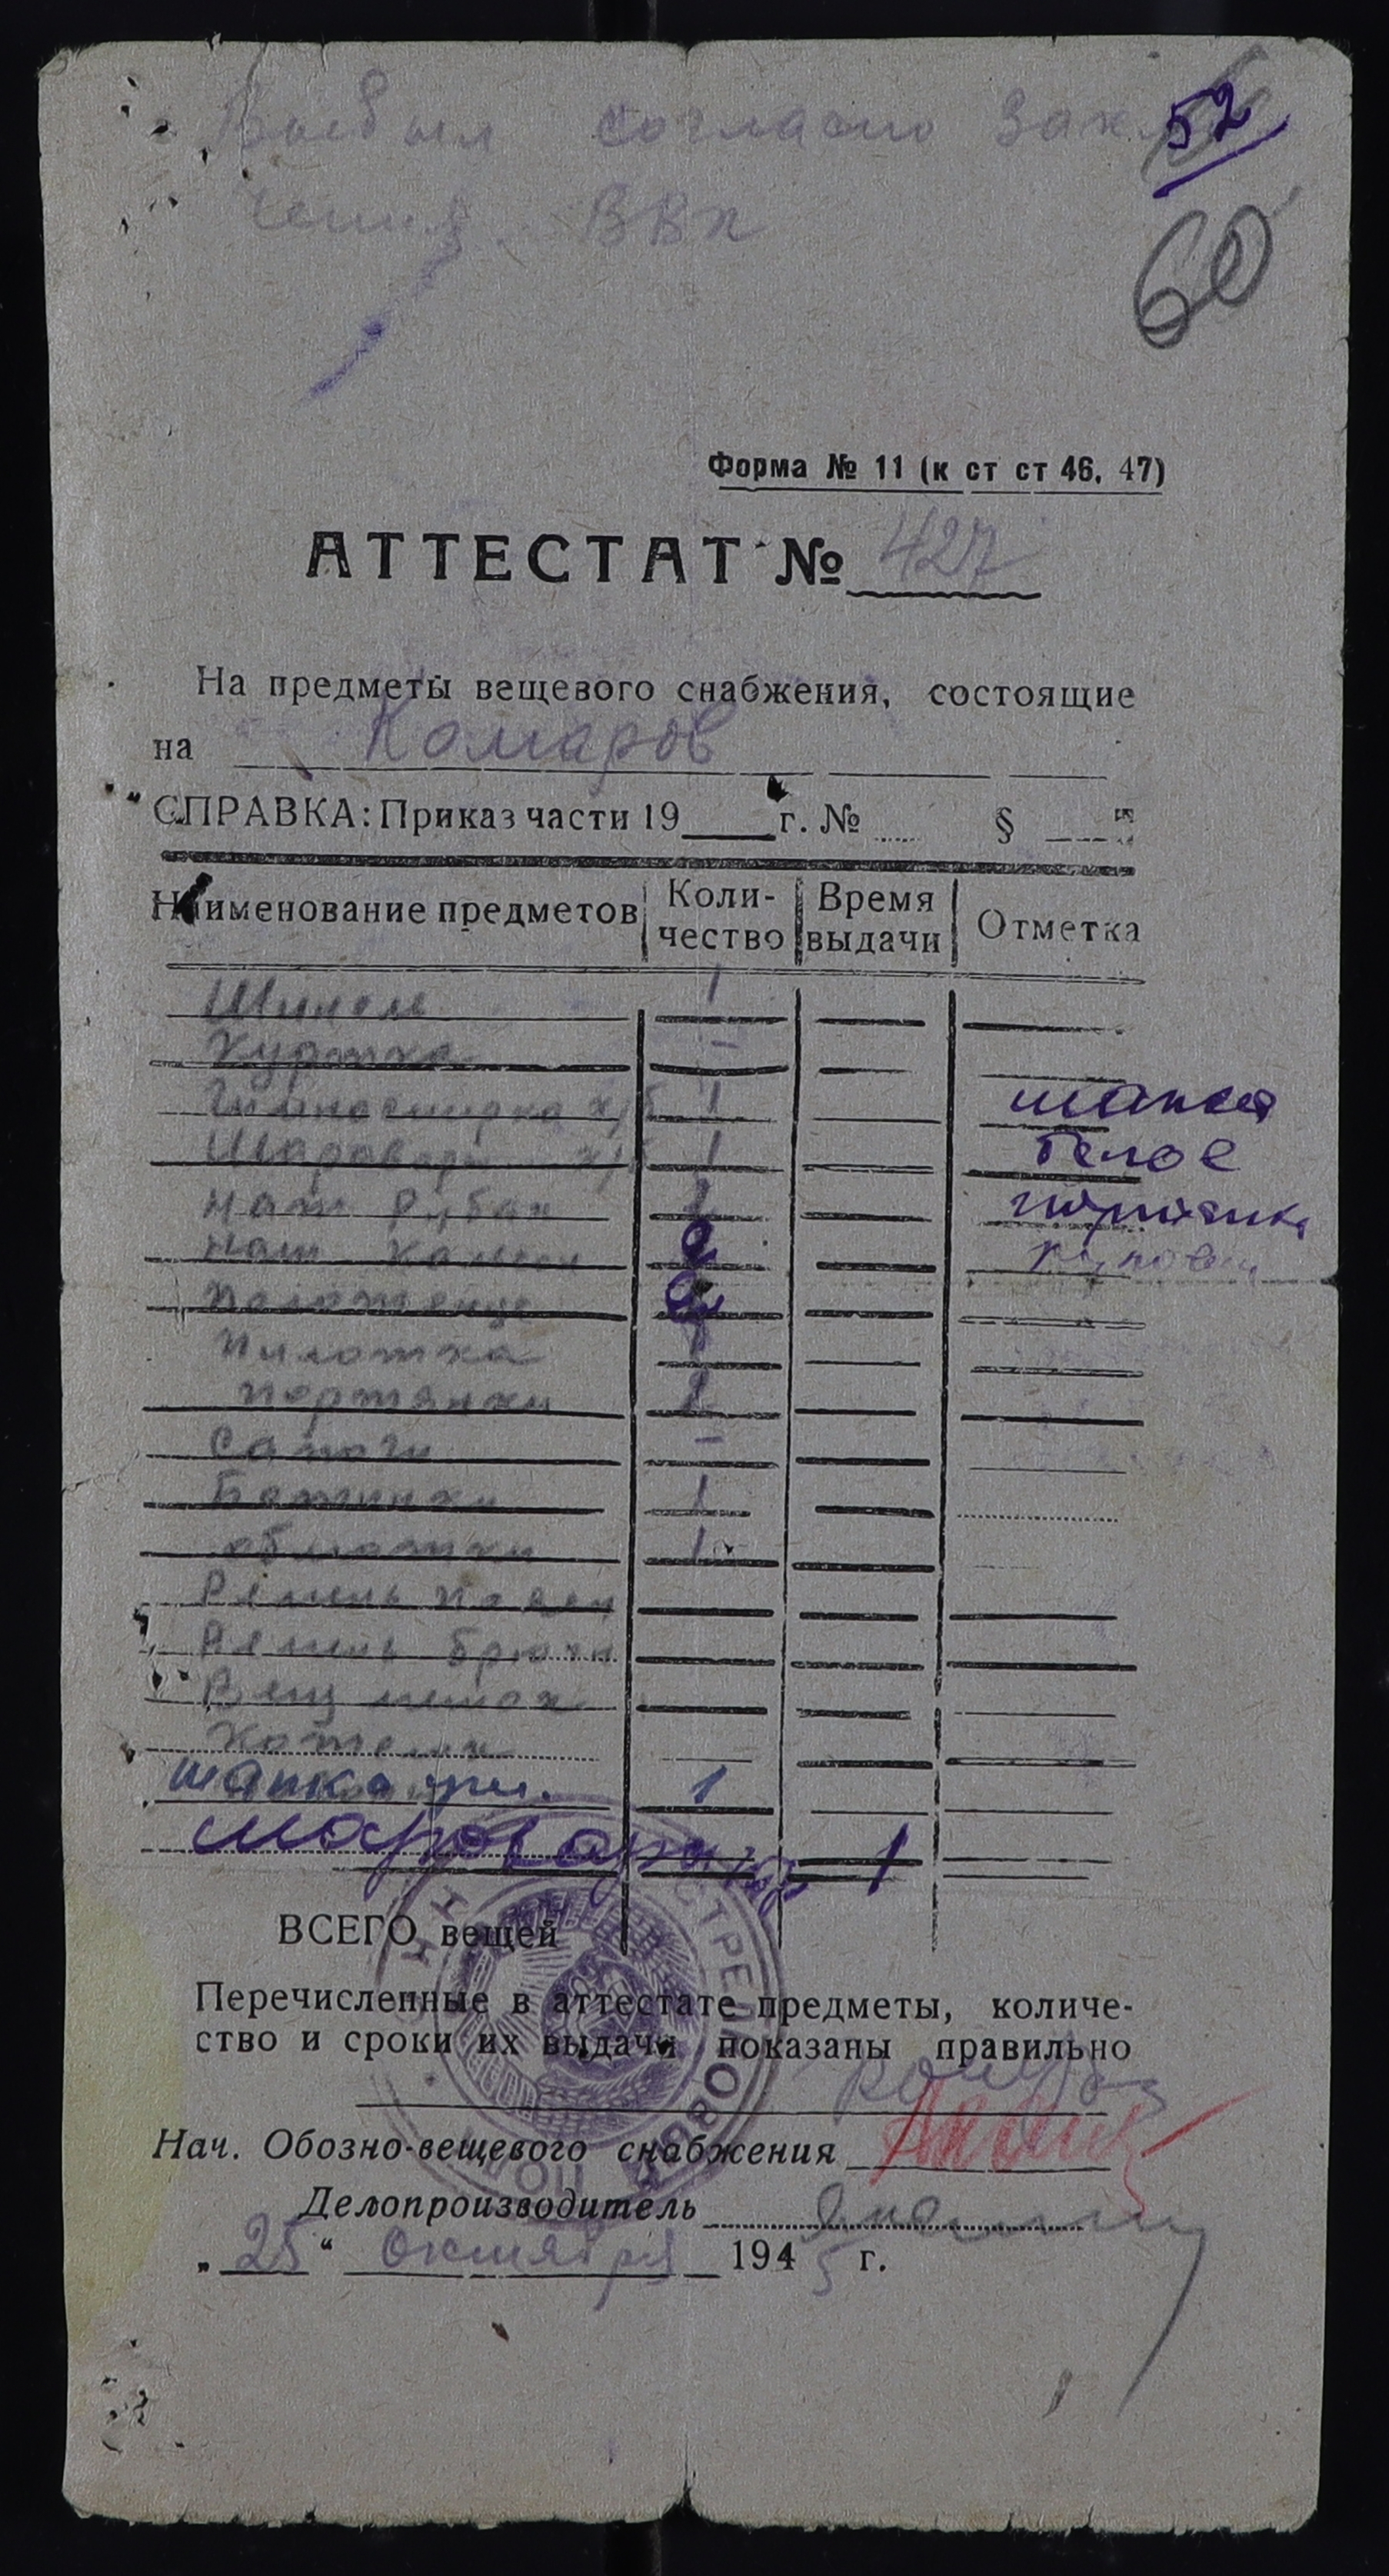 Выбыл согласно Заклю
чения ВВК
52
60
Форма № 11 (к ст ст 46, 47)
АТТЕСТАТ № 427
На предметы вещевого снабжения, состоящие
на Комаров
СПРАВКА: Приказ части 19 г. № §
Наименование предметов Коли-чество Время выдачи Отметка
Шинель 1
Куртка –
Гимнастерка х/б 1 шапка
Шаровары х/б 1 белое
Нат рубах 2 портянки
Нат кальсон 2
Полотенце 2
Пилотка 1
Портянки 2
Сапоги –
Ботинки 1
обмотки 1
Ремень поясн
Ремень брючн
Вещ мешок
Котелок
шапка 1
шаровары 1
ВСЕГО вещей
Перечисленные в аттестате предметы, количе-
ство и сроки их выдачи показаны правильно
Нач. Обозно-вещевого снабжения
Делопроизводитель
„ 25 “ октября 1945 г.